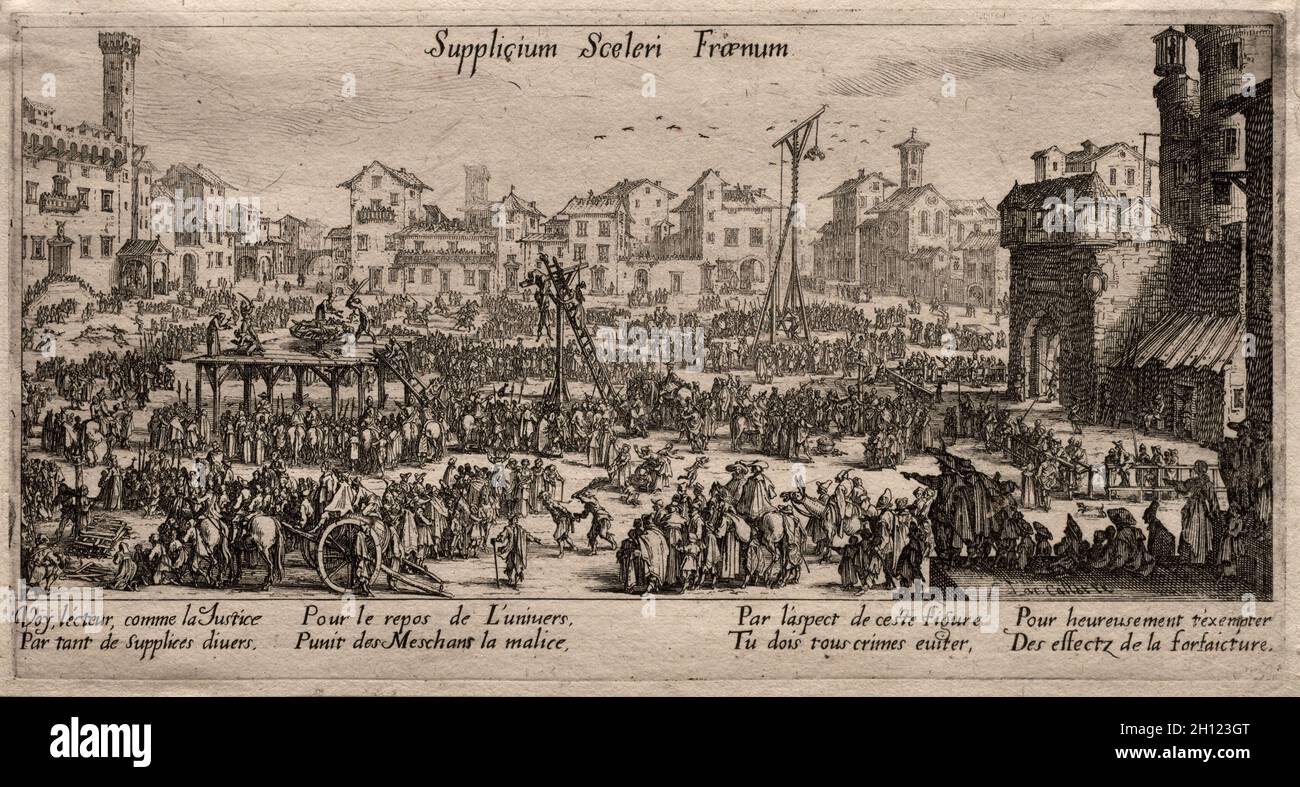 Suppliçium Sceleri Frœnum
Voy, lecteur, comme la Justice
Par tant de supplices diuers,
Pour le repos de L'uniuers,
Punit des Meschans la malice,
Par l'aspect de ceste figure
Tu dois tous crimes euiter,
Pour heureusement t'exempter
Des effectz de la forfaicture.
alamy
Image ID: 2H123GT
www.alamy.com